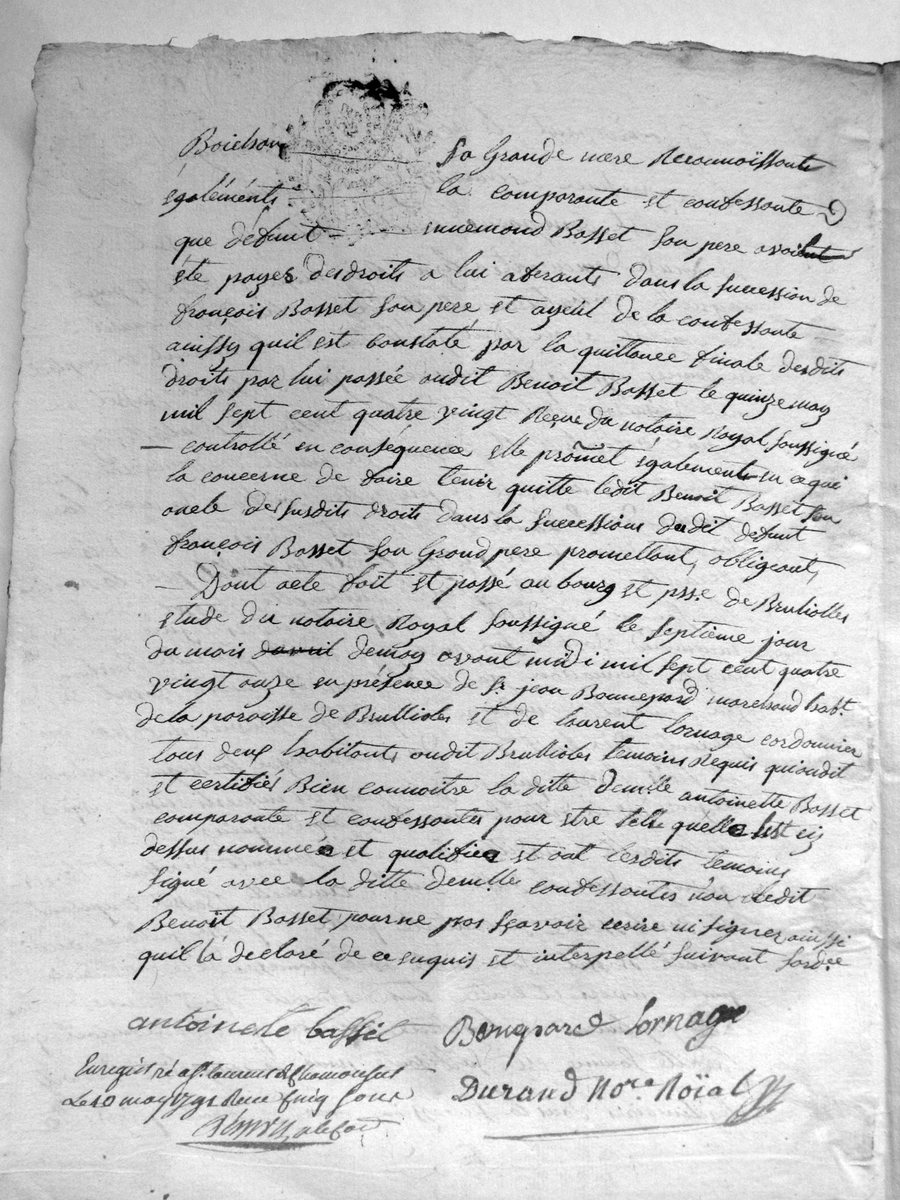 Boielson sa Grande mere Reconnoissante
egalements la comparante et confessante
que defunt ennemond Basset son pere avoit
été payez des droits a lui aferants dans la succession de
françois Basset son pere et ayeul de la confessante
ainssy quil est constaté par la quittance finale desdits
droits par lui passée audit Benoit Basset le quinze may
mil sept cent quatre vingt Reçue du notaire Royal soussigné
controllé en conséquence elle promet égalements en ce qui
la concerne de faire tenir quitte ledit Benoit Basset son
oncle desusdits droits dans la successions dudit defunt
françois Basset son Grand pere promettant, obligeant,
Dont acte fait et passé au bourg et psse. de Brulliolles
etude du notaire Royal soussigné le septième jour
du mois davril demay avant midi mil sept cent quatre
vingt onze en présence de Sr. jean Bonnepard marchand habt.
de la paroisse de Brullioles et de laurent lornage cordonnier
tous deux habitants audit Brullioles temoins Requis qui ondit
et certifiés Bien connoitre la ditte demlle antoinette Basset
comparante et confessantes pour etre telle quelle est cy
dessus nommée et qualifiée et ont lesdits temoins
signé avec la ditte demelles confessantes non ledit
Benoit Basset pour ne pas sçavoir ecrire ni signer ainssi
quil la déclaré de ce enquis et interpellé suivant lordce
antoinette bassét Bonepard lornage
Enregistré a St. Laurent de Chamousset
Le 10 may 1791 Recu cinq sous
Durand Nore. Roïal